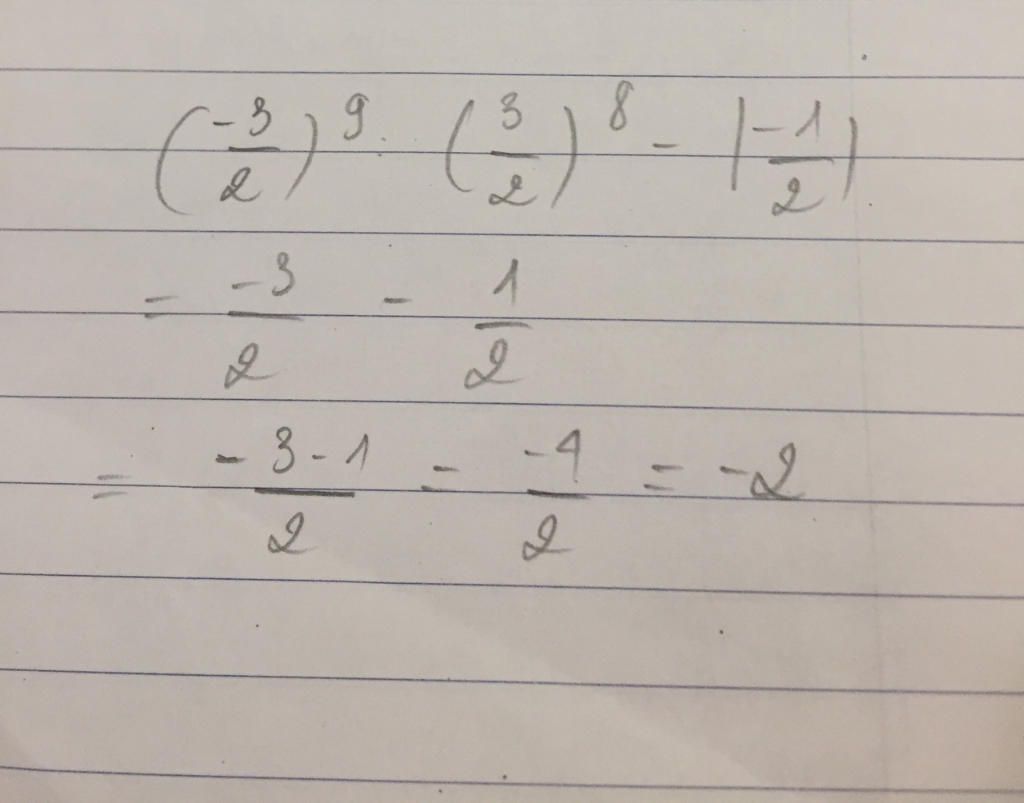 (-3/2)^9 . (3/2)^8 - |-1/2|
= -3/2 - 1/2
= -3-1/2 = -4/2 = -2